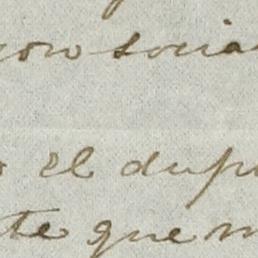 socia
el dup
te que m